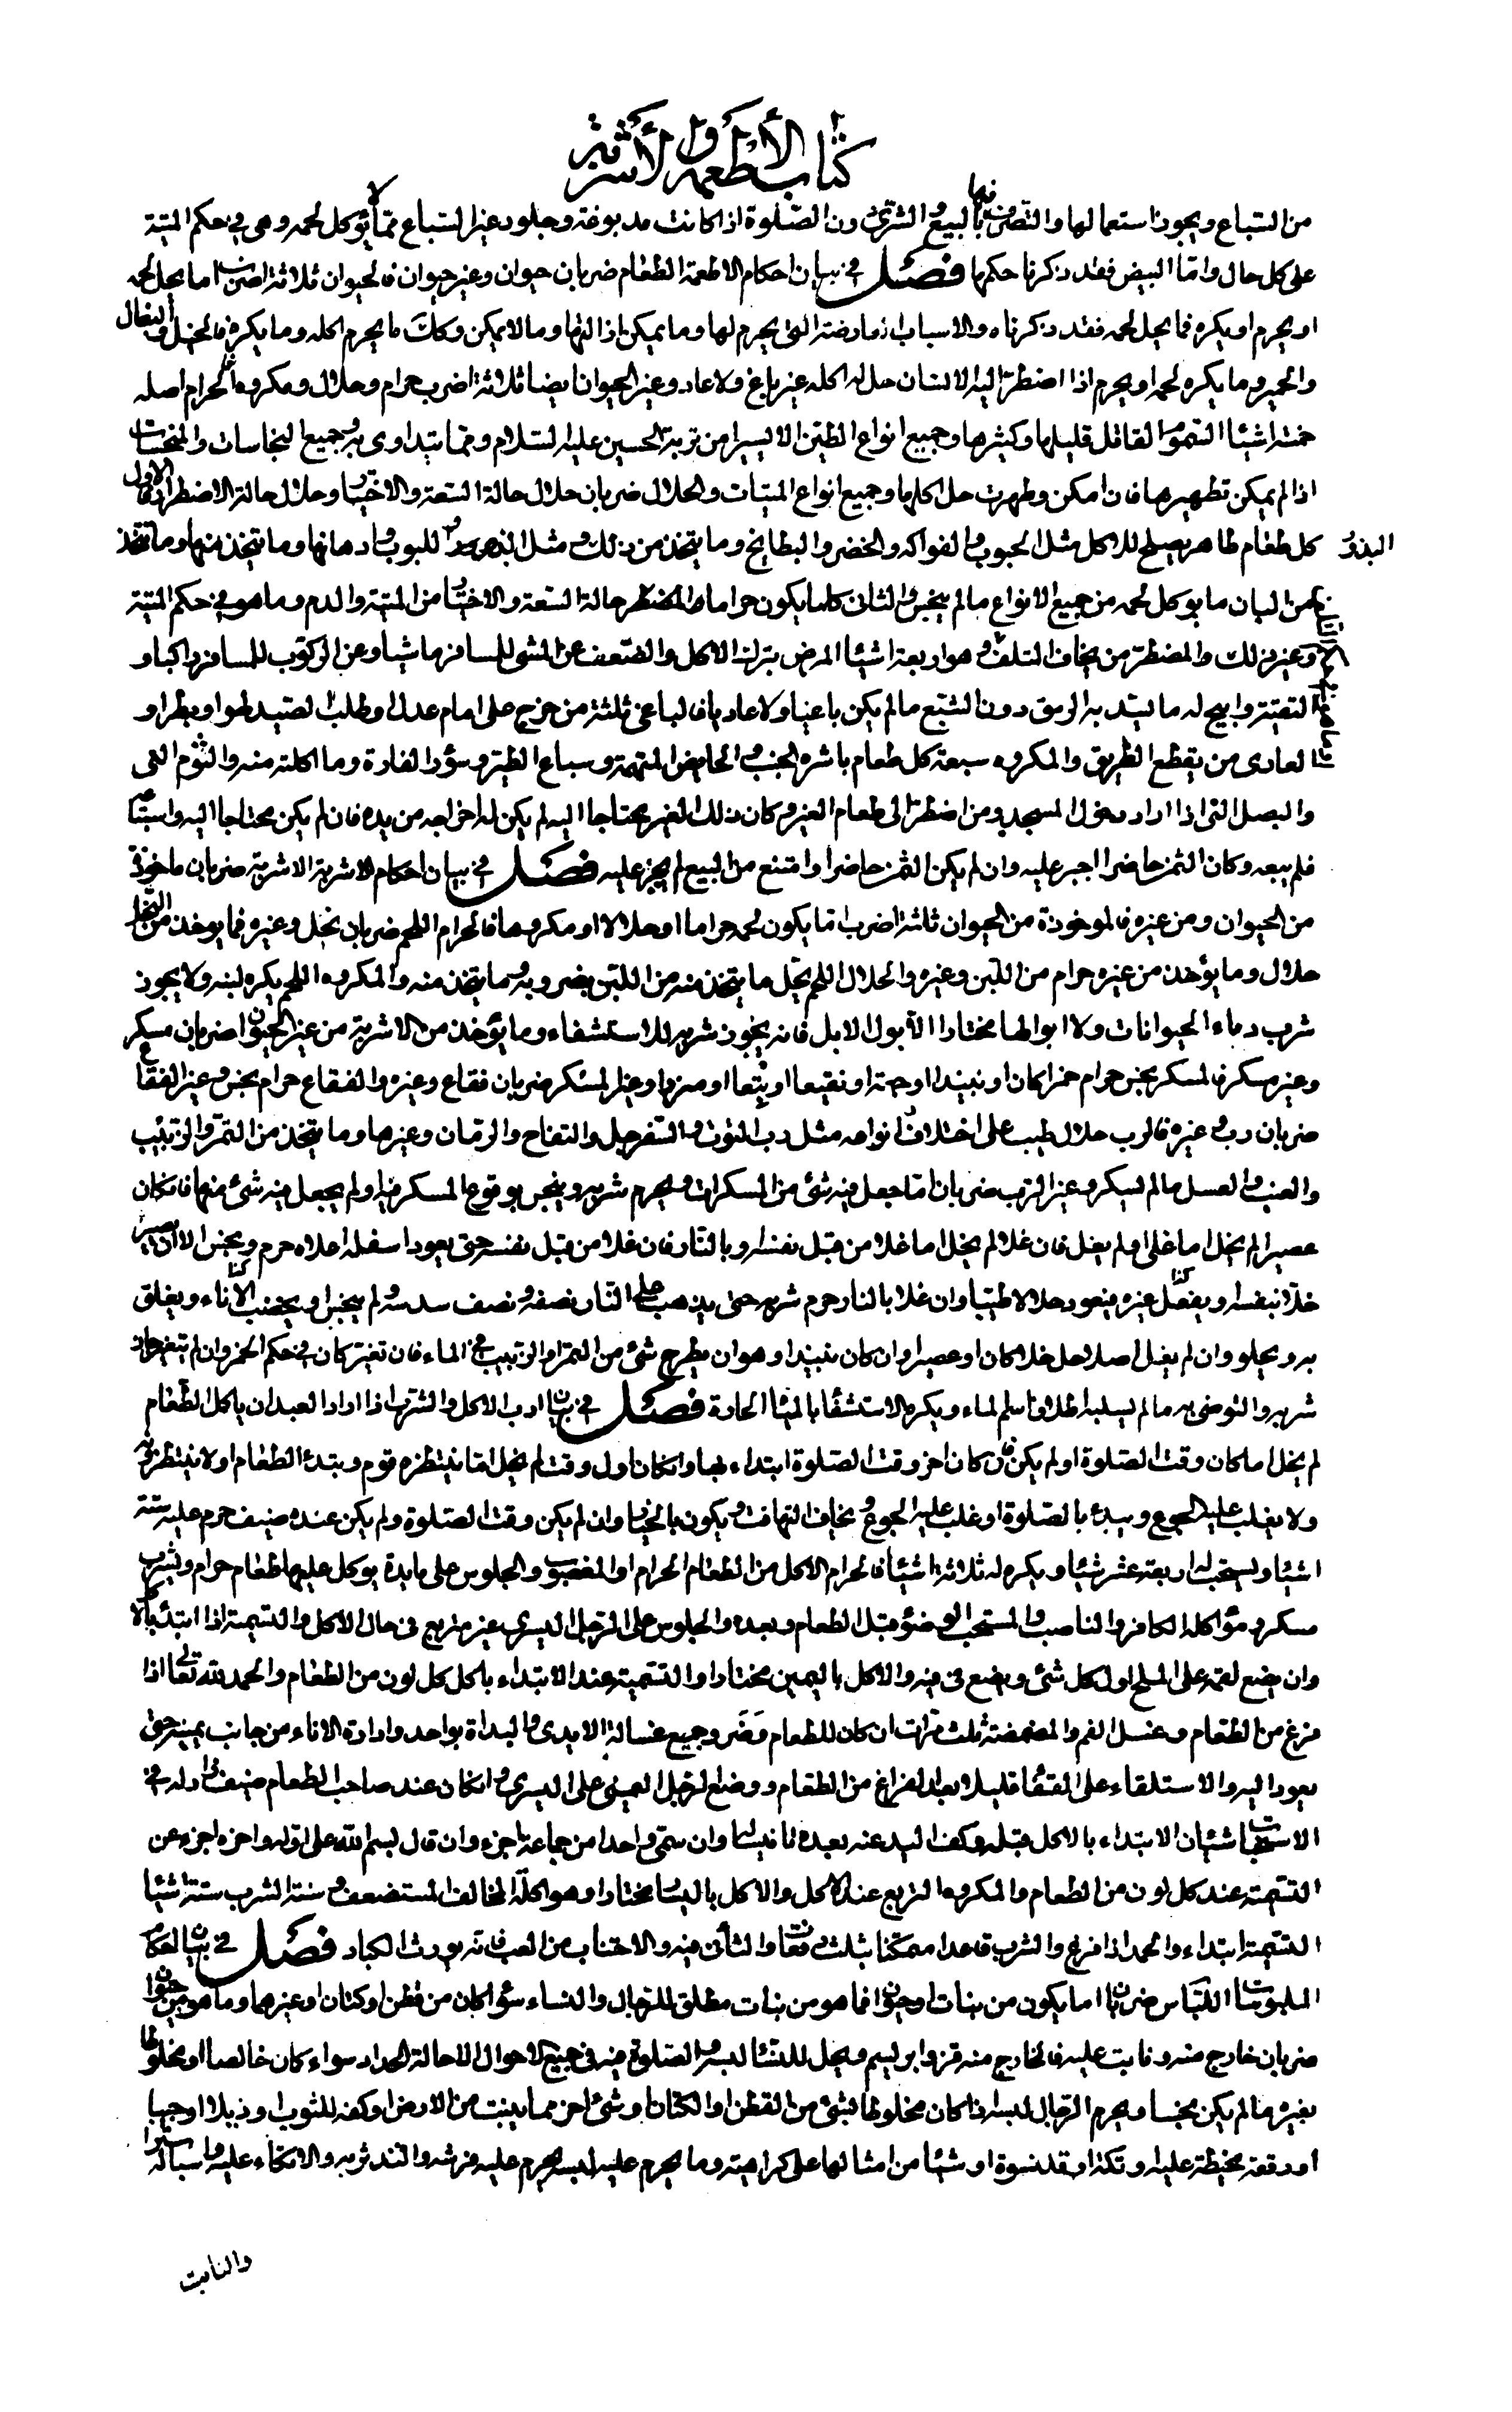 كتاب الأطعمة والأشربة
من السباع ويجوز استعمالها والتصرف فيها بالبيع والشرى دون الصلوة اذا كانت مدبوغة وجلود غير السباع مما لا يؤكل لحمه وهى فى حكم الميتة
على كل حال واما البيض فقد ذكرنا حكمها فصل فى بيان احكام الاطعمة الطعام ضربان حيوان وغير حيوان فالحيوان ثلاثة اضرب اما يحل لحمه
او يحرم او يكره فما يحل لحمه فقد ذكرناه والاسباب العارضة التى يحرم لها وما يمكن ازالتها وما لا يمكن وكك ما يحرم اكله وما يكره فالخيل والبغال
والحمير وما يكره لحمه او يحرم اذا اضطر اليه الانسان حل له اكله غير باغ ولا عاد وغير الحيوان ايضا ثلاثة اضرب حرام وحلال ومكروه فالحرام اصله
خمسة اشياء السموم القاتل قليلها وكثيرها وجميع انواع الطين الا اليسير من تربة الحسين عليه السلام ومما يتداوى به وجميع النجاسات والمنجسات
اذا لم يمكن تطهيرها فان امكن وطهرت حل اكلها وجميع انواع الميتات والحلال ضربان حلال حالة السعة والاختيار وحلال حالة الاضطرار فالاول
كل طعام طاهر يصلح للاكل مثل الحبوب والفواكه والخضر والبطايخ وما يتخذ من ذلك ومثل للبوب وادهانها وما يتخذ منها وما يتخذ البذور
من البان ما يوكل لحمه من جميع الانواع ما لم ينجس والثانى كلما يكون حراما والمضطر حالة السعة والاختيار من الميتة والدم وما هو فى حكم الميتة
وغير ذلك والمضطر من يخاف التلف وهو اربعة اشياء المرض بترك الاكل والضعف عن المشى للمسافر ماشيا وعن الركوب للمسافر راكبا و
التقية وابيح له ما يسد به الرمق دون الشبع ما لم يكن باغيا ولا عاديا فالباغى ثلثة من خرج على امام عدل او طلب الصيد لهوا وبطرا و
العادى من يقطع الطريق والمكروه سبعة كل طعام باشره الجنب والحايض المتهمة وسباع الطير وسؤر الفارة وما اكلته منه والثوم النى
والبصل النى اذا اراد دخول المسجد ومن اضطر الى طعام الغير وكان ذلك الغير محتاجا اليه لم يكن له اخراجه من يده فان لم يكن محتاجا اليه واستباعه
فلم يبعه وكان الثمن حاضرا اجبر عليه وان لم يكن الثمن حاضرا وامتنع من البيع لم يجبر عليه فصل فى بيان احكام الاشربة الاشربة ضربان ماخوذة
من الحيوان ومن غيره فالموخوذة من الحيوان ثلثة اضرب اما يكون لحمه حراما او حلالا او مكروها فالحرام اللحم ضربان نحل وغيره فما يوخذ من النحل
حلال وما يؤخذ من غيره حرام من اللبن وغيره والحلال اللحم يحل ما يتخذ منه من اللبن بضروبه وما يتخذ منه والمكروه اللحم يكره لبنه ولا يجوز
شرب دماء الحيوانات ولا ابوالها مختارا الا بول الابل فانه يجوز شربه للاستشفاء وما يؤخذ من الاشربة من غير الحيوان ضربان مسكر
وغير مسكر فالمسكر نجس حرام خمرا كان او نبيذا او جعة او نقيعا او بتعا او مزرا وغير المسكر ضربان فقاع وغيره والفقاع حرام نجس وغير الفقاع
ضربان رب وغيره فالرب حلال طيب على اختلاف انواعه مثل رب التوت والسفرجل والتفاح والرمان وغيرها وما يتخذ من التمر والزبيب
والعنب والعسل ما لم يسكر وغير الرب ضربان اما جعل فيه شئ من المسكرات ويحرم شربه وينجس بوقوع المسكر فيه او لم يجعل فيه شئ منها فان كان
عصيرا لم يخل اما غلى او لم يغل فان غلا لم يخل اما غلا من قبل نفسه او بالنار فان غلا من قبل نفسه حتى يعود اسفله اعلاه حرم ونجس الا ان يصير
خلا بنفسه او بفعل غيره فيعود حلالا طيبا وان غلا بالنار حرم شربه حتى يذهب على النار نصفه ونصف سدسه ولم ينجس او يخضب الاناء ويعلق
به ويحلو وان لم يغل اصلا حل خلا كان او عصيرا وان كان نبيذا وهو ان يطرح شئ من التمر او الزبيب فى الماء فان تغير كان فى حكم الخمر وان لم يتغير جاز
شربه والتوضى به ما لم يسلبه اطلاق اسم الماء ويكره الاستشفاء بالمياه الحارة فصل فى بيان ادب الاكل والشرب اذا اراد العبد ان ياكل الطعام
لم يخل اما كان وقت الصلوة او لم يكن فان كان اخر وقت الصلوة ابتداء بها وان كان اول وقت لم يخل اما ينتظره قوم ويبتدء الطعام او لا ينتظرونه
ولا يغلب عليه الجوع ويبدء بالصلوة او غلب عليه الجوع ويخاف التهافت ويكون بالخيار وان لم يكن وقت الصلوة ولم يكن عنده ضيف حرم عليه ستة
اشياء ويستحب له اربعة عشر شيئا ويكره له ثلاثة اشياء فالحرام الاكل من الطعام الحرام او المغصوب والجلوس على مايدة يوكل عليها طعام حرام ويشرب
مسكر ومؤاكلة الكافر والناصب والمستحب الوضؤ قبل الطعام وبعده والجلوس على الرجل اليسرى غير متربع فى حال الاكل والتسمية اذا ابتدء بالاكل
وان يضع لقمه على الملح اول كل شئ ويضع فى فيه والاكل باليمين مختارا والتسمية عند الابتداء باكل كل لون من الطعام والحمد لله تعالى اذا
فرغ من الطعام وغسل الفم والمضمضة ثلث مرات ان كان للطعام وضر وجميع غسالة الايدى والبداة بواحد وادارة الاناء من جانب يمينه حتى
يعود اليه والاستلقاء على القفا قليلا بعد الفراغ من الطعام ووضع الرجل اليمنى على اليسرى وان كان عند صاحب الطعام ضيف زاد له فى
الاستحباب شيئان الابتداء بالاكل قبله وكف اليد عنه بعده ثانيا وان سمى واحدا من جماعة اجزء وان قال بسم الله على اوله واخره اجزء عن
التسمية عند كل لون من الطعام والمكروه التربع عند الاكل والاكل باليسار مختارا ومؤاكلة المخالف المستضعف وسنة الشرب ستة اشياء
التسمية ابتداء والحمد اذا فرغ والشرب قاعدا ممكنا بثلث دفعات والتأنى فيه والاجتناب من العب فانه يورث الكباد فصل فى بيان احكام
الملبوسات اللباس ضربان اما يكون من نبات او حيوان فما هو من نبات مطلق للرجال والنساء سواء كان من قطن او كتان او غيرهما وما هو من حيوان
ضربان خارج منه ونابت عليه فالخارج منه قز وابريسم ويحل للنساء لبسه والصلوة فيه فى جميع الاحوال الا حالة الحداد سواء كان خالصا او مخلوطا
بغيره ما لم يكن نجسا ويحرم الرجال لبسه اذا كان مخلوطا بشئ من القطن او الكتان او شئ اخر مما ينبت من الارض او كفه للثوب او ذيلا او جيبا
او رقعة مخيطة عليه او تكة او قلنسوة او شيئا من امثالها على كراهيته وما يحرم عليه لبسه يحرم عليه فرشه والتدثر به والاتكاء عليه واسباله سترا
والنابت